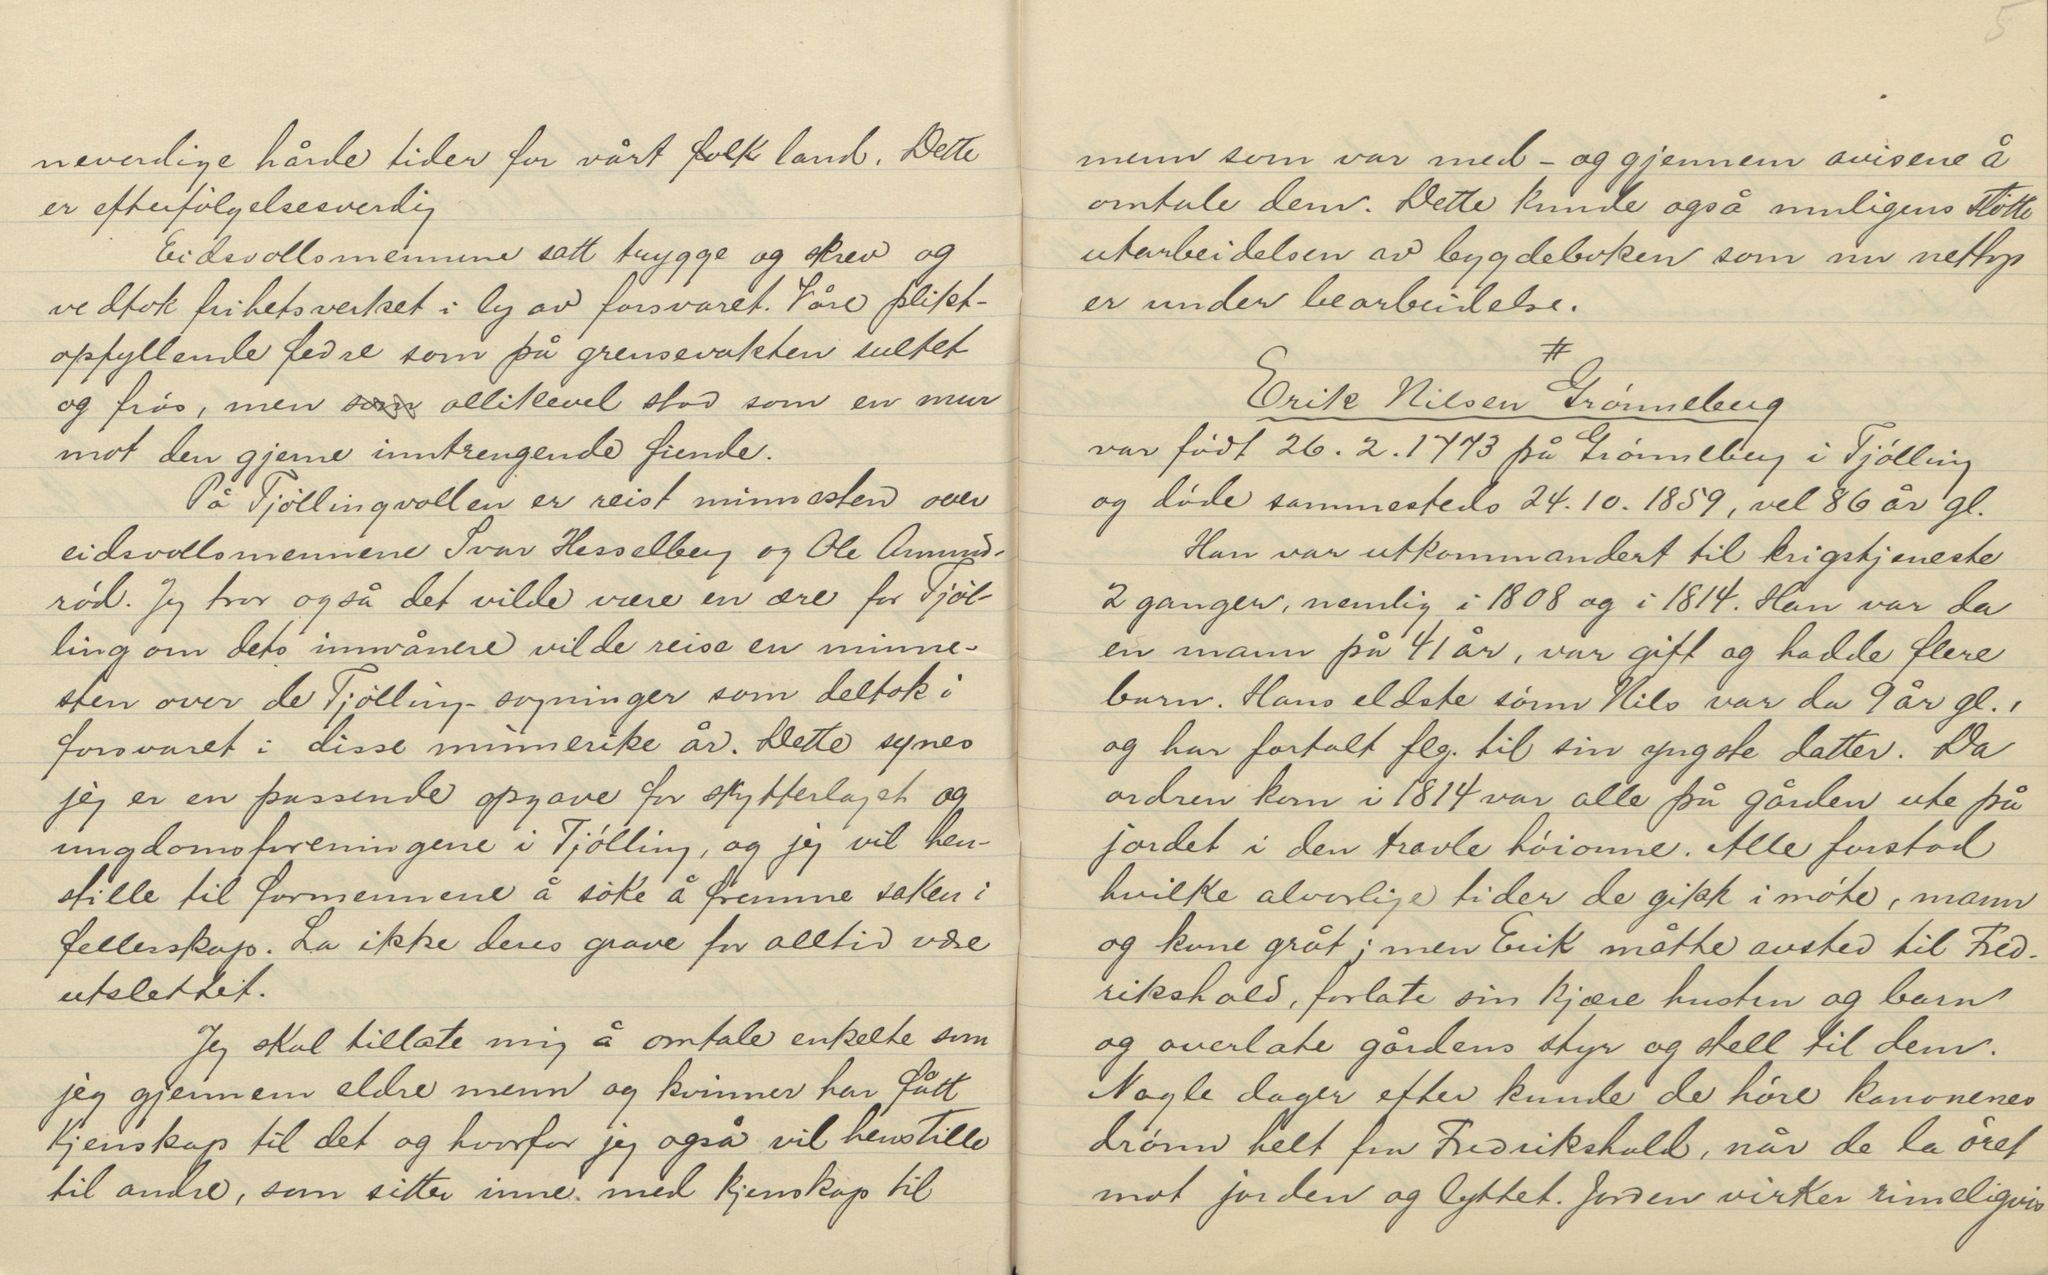 neverdige hårde tider for vårt folk land. Dette
er efterfölgelsesverdig
Eidsvollsmennene satt trygge og skrev og
vedtok frihetsverket i ly av forsvaret. Våre plikt-
opfyllende fedre som på grensevakten sultet
og frös, men som allikevel stod som en mur
mot den gjerne inntrengende fiende.
På Tjöllingvollen er reist minnesten over
eidsvollsmennene Ivar Hesselberg og Ole Amund-
röd. Jeg tror også det vilde være en ære for Tjöl-
ling om dets innvånere vilde reise en minne-
sten over de Tjölling-sogninger som deltok i
forsvaret i disse minnerike år. Dette synes
jeg er en passende opgave for skytterlaget og
ungdomsforeningene i Tjölling, og jeg vil hen-
stille til formennene å söke å fremme saken i
fellesskap. La ikke deres grave for alltid være
utslettet.
Jeg skal tillate mig å omtale enkelte som
jeg gjennem eldre menn og kvinner har fått
kjenskap til det og hvorfor jeg også vil henstille
til andre, som sitter inne med kjenskap til
5
menn som var med - og gjennem avisene å
omtale dem. Dette kunde også muligens stötte
utarbeidelsen av bygdeboken som nu nettop
er under bearbeidelse.
#
Erik Nilsen Grönneberg
var födt 26.2.1773 på Grönneberg i Tjölling
og döde sammesteds 24.10.1859, vel 86 år gl.
Han var utkommandert til krigstjeneste
2 ganger, nemlig i 1808 og i 1814. Han var da
en mann på 41 år, var gift og hadde flere
barn. Hans eldste sönn Nils var da 9 år gl.,
og har fortalt flg. til sin yngste datter. Da
ordren kom i 1814 var alle på gården ute på
jordet i den travle höionne. Alle forstod
hvilke alvorlige tider de gikk i möte, mann
og kone gråt; men Erik måtte avsted til Fred-
rikshald, forlate sin kjære hustru og barn
og overlate gårdens styr og stell til dem.
Nogle dager efter kunde de höre kanonenes
drönn helt fra Fredrikshald, når de la öret
mot jorden og lyttet. Jorden virker rimeligvis